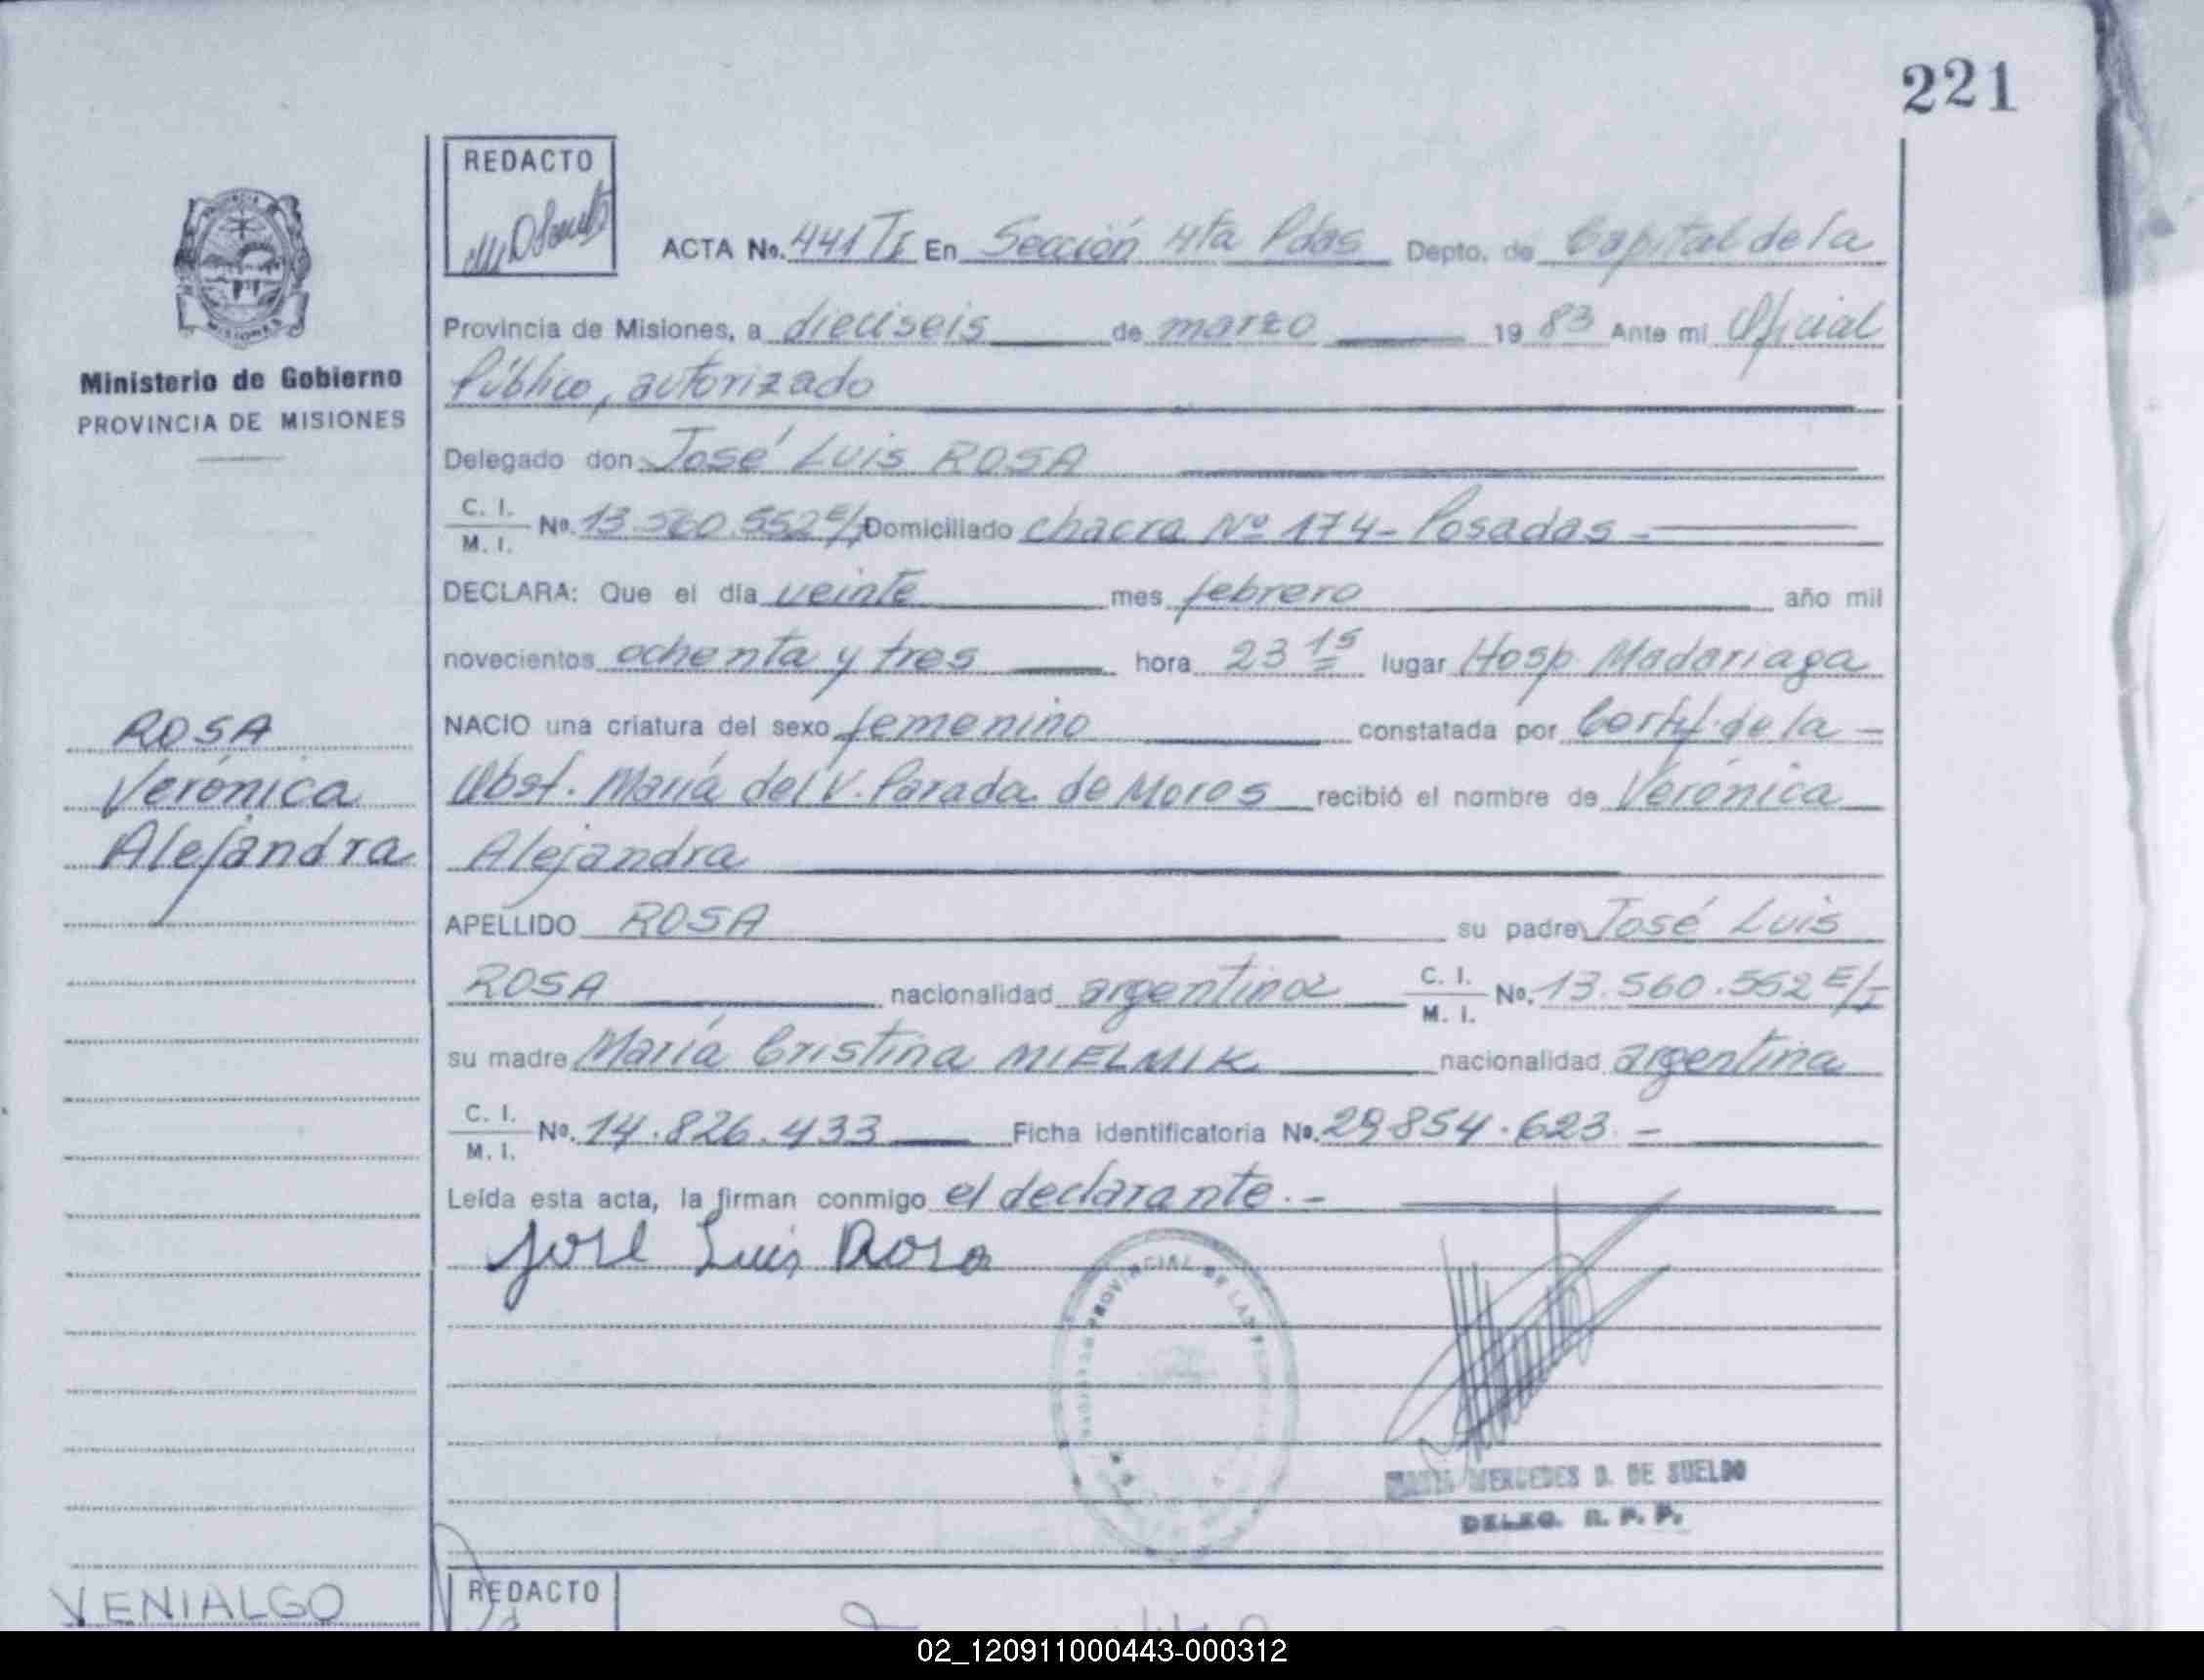 221
REDACTO
ACTA No. 441 TI En Sección 4ta Pdas Depto. de Capital de la
Provincia de Misiones, a dieciseis de marzo 1983 Ante mi Oficial
Público, autorizado
Delegado don José Luis ROSA
C. I. / M. I. No. 13.560.552 E/I Domiciliado chacra Nº 174 - Posadas -
DECLARA: Que el día veinte mes febrero año mil
novecientos ochenta y tres hora 23 15 lugar Hosp Madariaga
NACIO una criatura del sexo femenino constatada por Certif. de la -
Obst. María del V. Parada de Moros recibió el nombre de Verónica
Alejandra
APELLIDO ROSA su padre José Luis
ROSA nacionalidad argentina C. I. / M. I. No. 13.560.552 E/I
su madre María Cristina MIELMIK nacionalidad argentina
C. I. / M. I. No. 14.826.433 Ficha identificatoria No. 29.854.623. -
Leída esta acta, la firman conmigo el declarante. -
José Luis Rosa
PROVINCIAL DE LAS
MERCEDES D. DE SUELDO
DELEG. R. P. P.
PROVINCIA
MISIONES
Ministerio de Gobierno
PROVINCIA DE MISIONES
ROSA
Verónica
Alejandra
VENIALGO
REDACTO
02_120911000443-000312